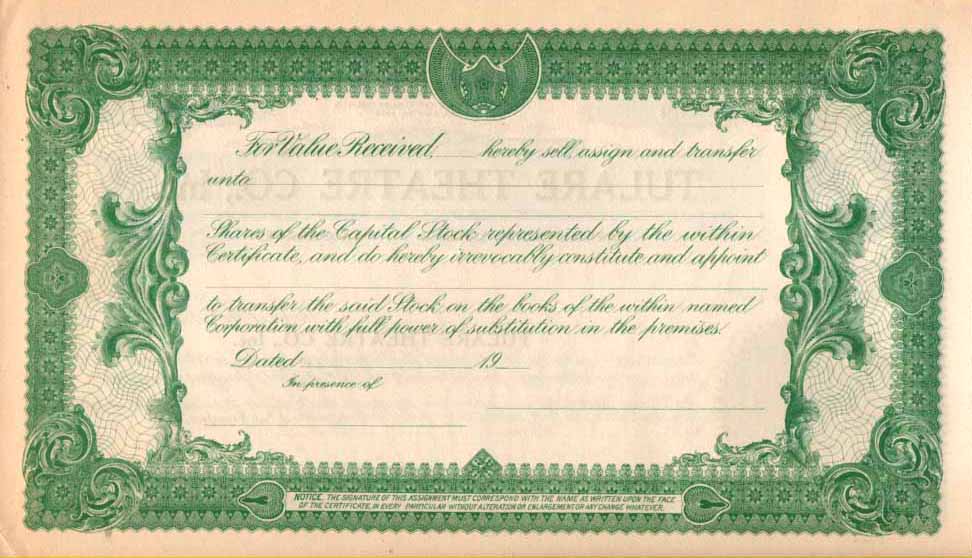 For Value Received, ____ hereby sell, assign and transfer
unto
Shares of the Capital Stock represented by the within
Certificate, and do hereby irrevocably constitute and appoint
to transfer the said Stock on the books of the within named
Corporation with full power of substitution in the premises.
Dated ____ 19__
In presence of
NOTICE. THE SIGNATURE OF THIS ASSIGNMENT MUST CORRESPOND WITH THE NAME AS WRITTEN UPON THE FACE
OF THE CERTIFICATE, IN EVERY PARTICULAR WITHOUT ALTERATION OR ENLARGEMENT OR ANY CHANGE WHATEVER.
TULARE THEATRE CO.,
TULARE THEATRE CO.,